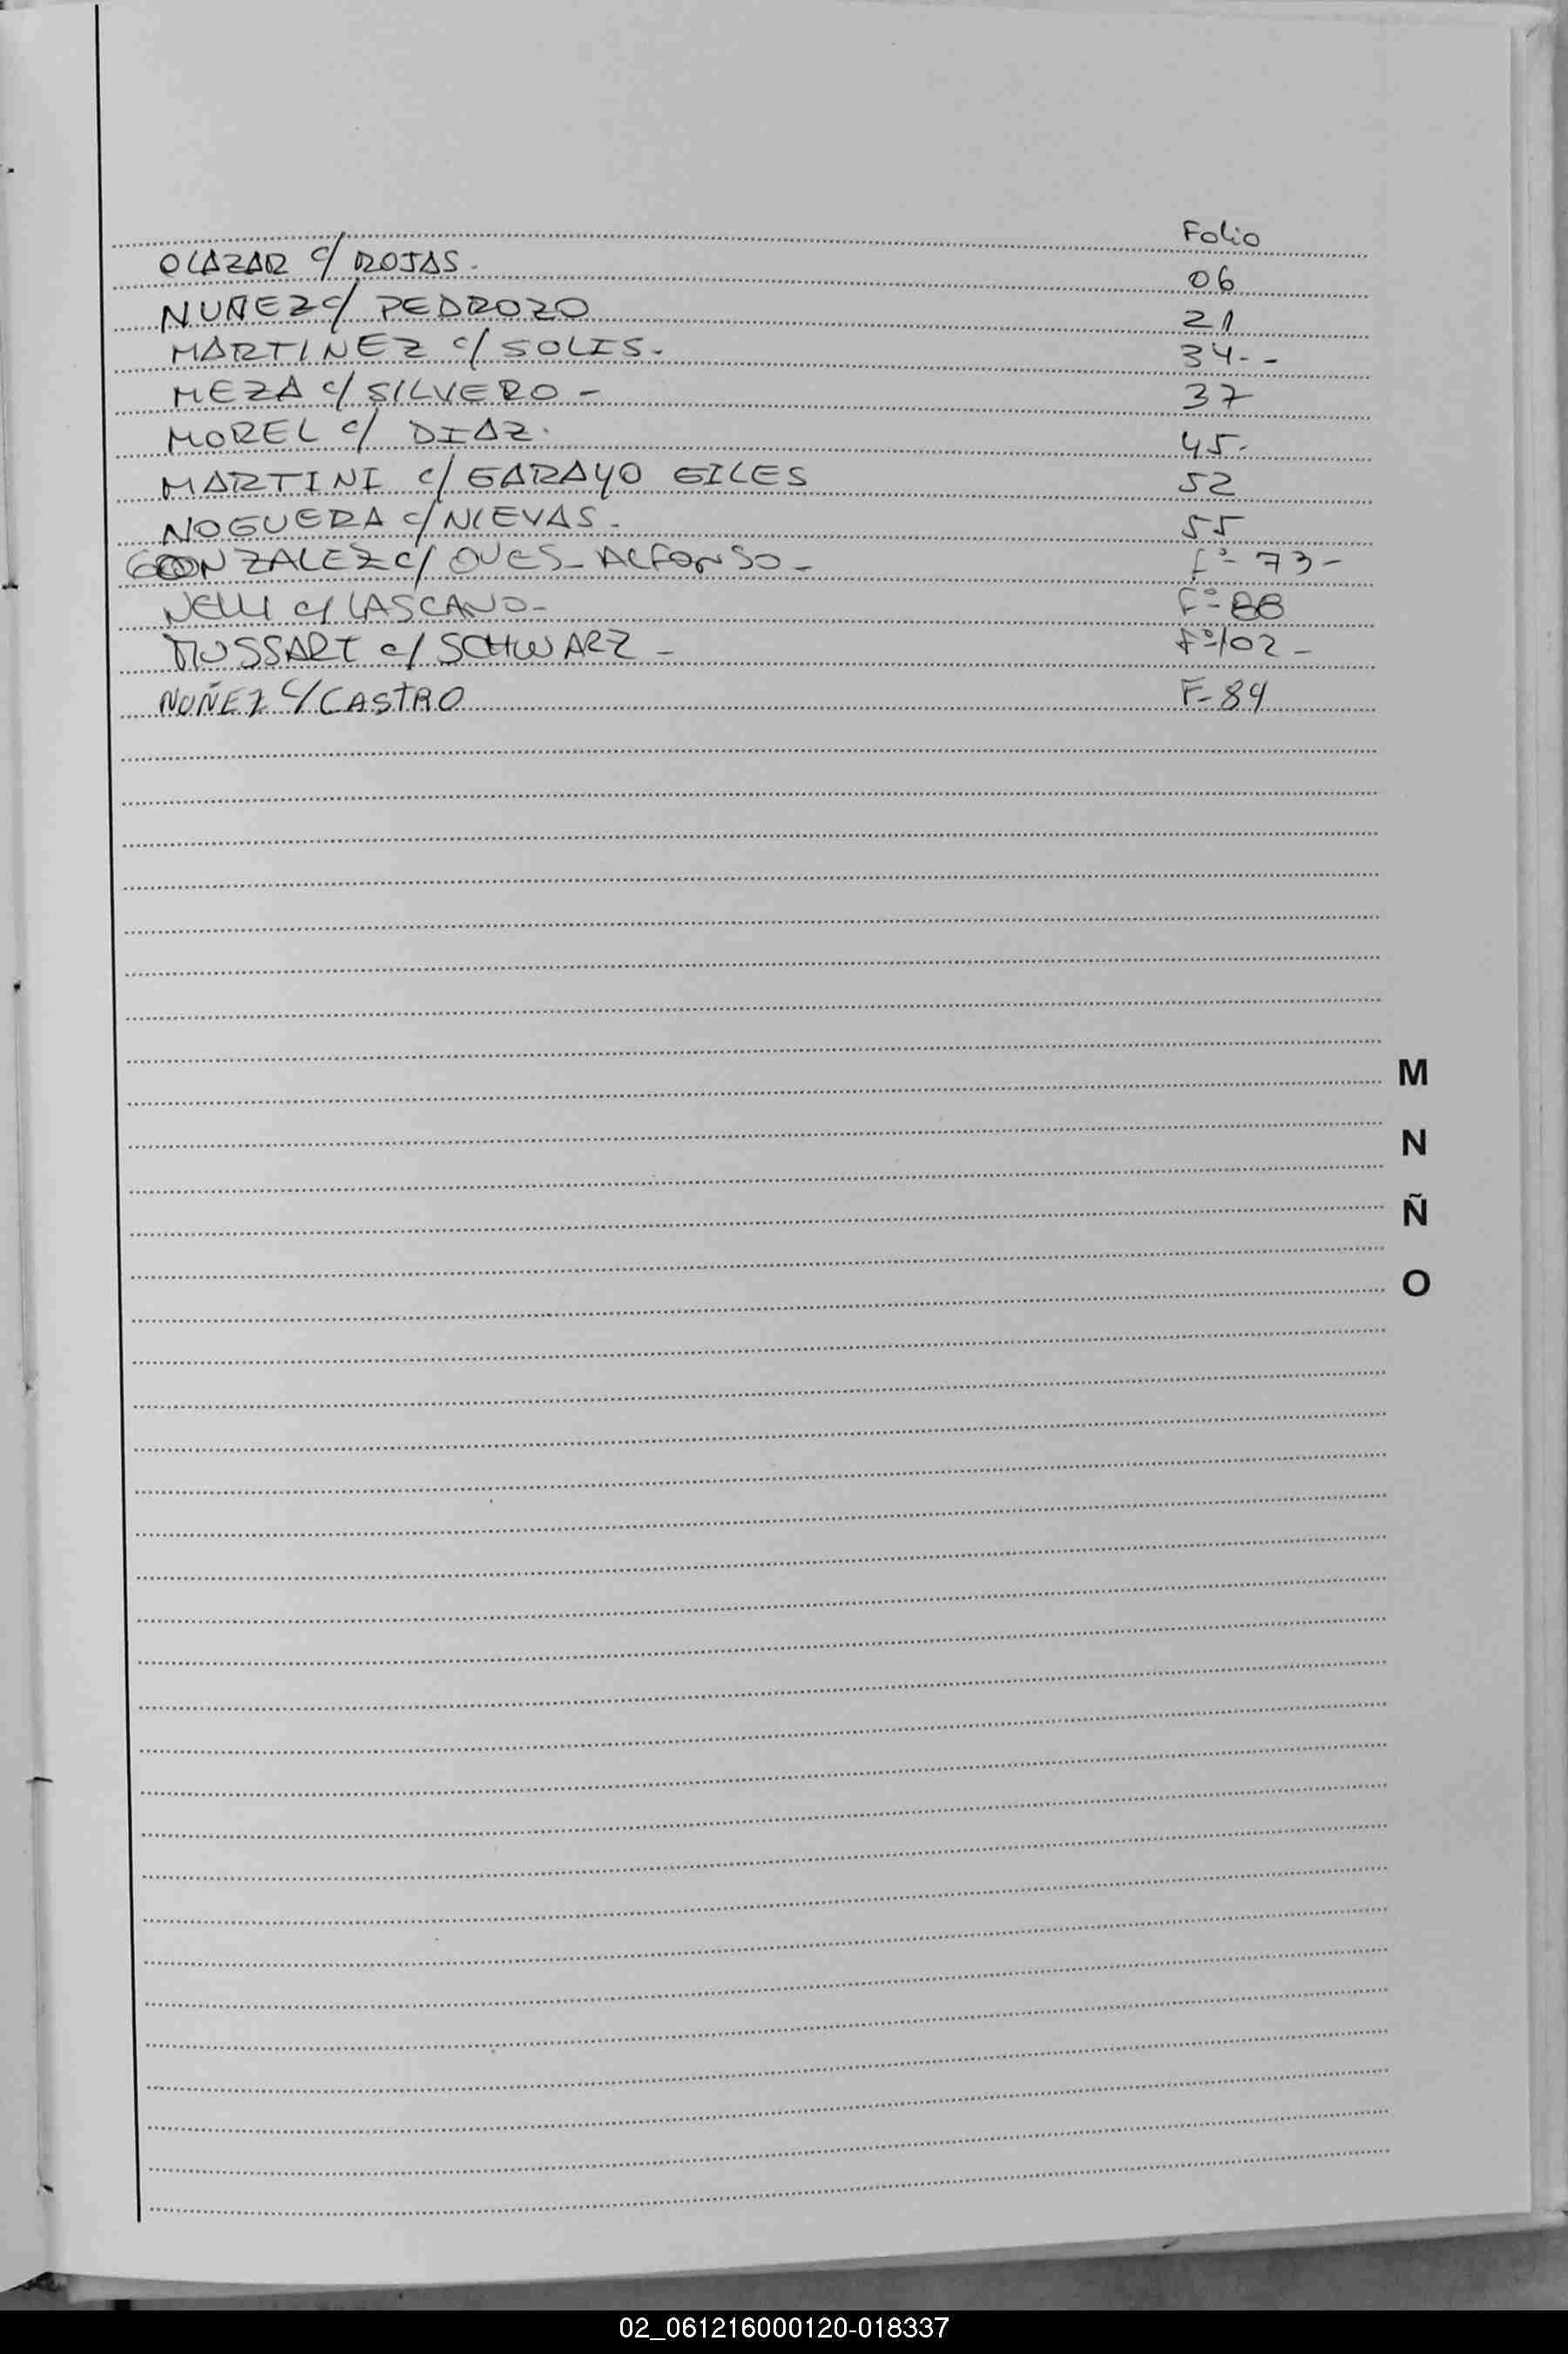 Folio
OLAZAR c/ ROJAS. 06
NUÑEZ c/ PEDROZO 21
MARTINEZ c/ SOLIS. 34--
MEZA c/ SILVERO - 37
MOREL c/ DIAZ. 45-
MARTINI c/ GARAYO GILES 52
NOGUERA c/ NIEVAS. 55
GONZALEZ c/ OVES- ALFONSO- f° 73-
NELLI c/ LASCANO- F° 88
MUSSART c/ SCHWARZ - F° 102-
NUÑEZ c/ CASTRO F- 84
M
N
Ñ
O
02_061216000120-018337